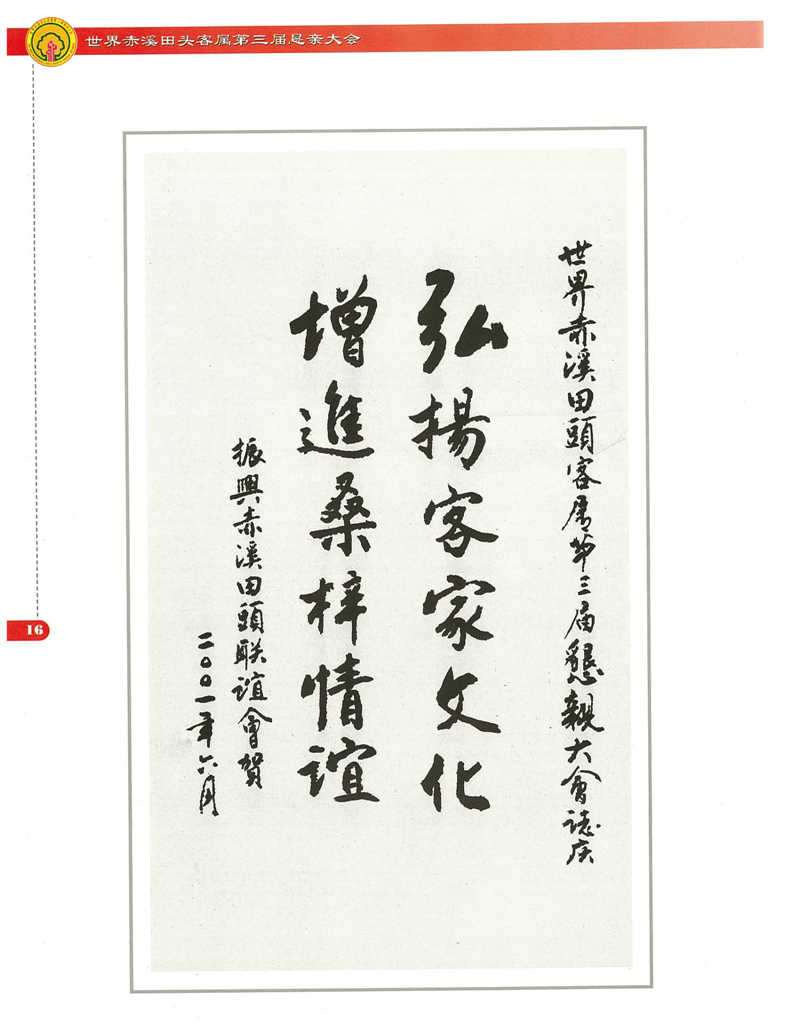 世界赤溪田头客属第三届恳亲大会
世界赤溪田頭客属第三届懇親大會誌庆
弘揚客家文化
增進桑梓情誼
振興赤溪田頭联誼會賀
二〇〇一年六月
16